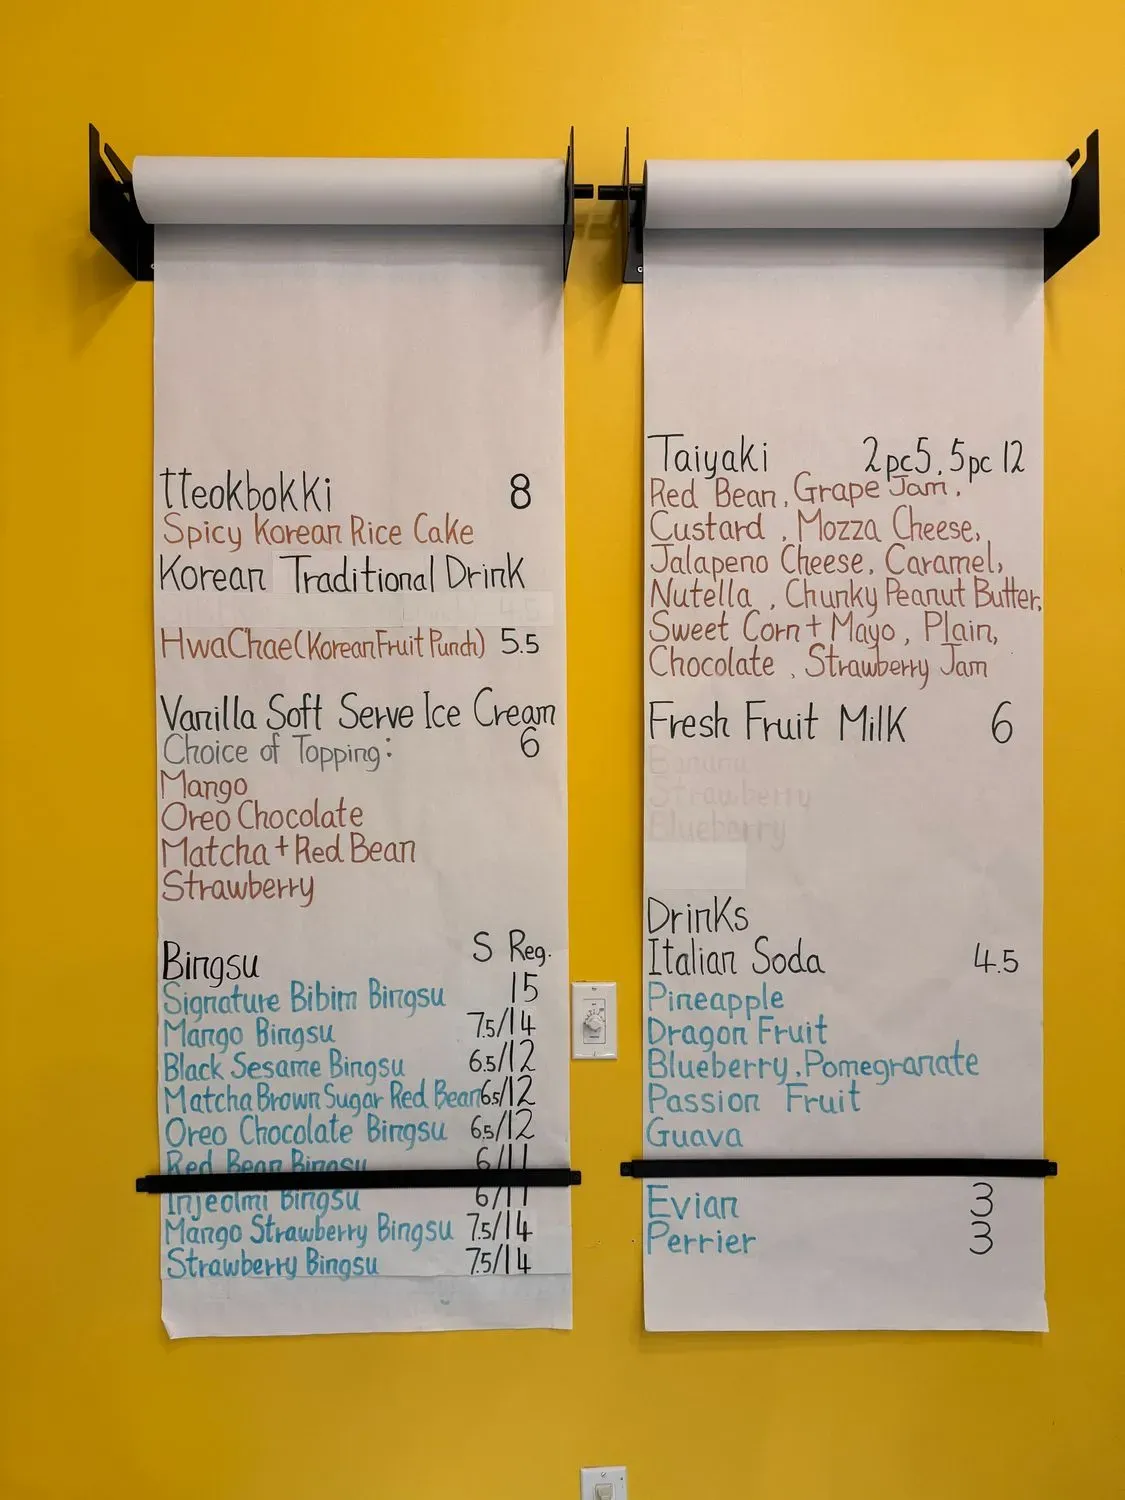 tteokbokki 8
Spicy Korean Rice Cake
Korean Traditional Drink
HwaChae(Korean Fruit Punch) 5.5
Vanilla Soft Serve Ice Cream
Choice of Topping: 6
Mango
Oreo Chocolate
Matcha + Red Bean
Strawberry
Bingsu S Reg.
Signature Bibim Bingsu 15
Mango Bingsu 7.5/14
Black Sesame Bingsu 6.5/12
Matcha Brown Sugar Red Bean 6.5/12
Oreo Chocolate Bingsu 6.5/12
Red Bean Bingsu 6/11
Injeolmi Bingsu 6/11
Mango Strawberry Bingsu 7.5/14
Strawberry Bingsu 7.5/14
Taiyaki 2pc5, 5pc 12
Red Bean, Grape Jam,
Custard, Mozza Cheese,
Jalapeno Cheese, Caramel,
Nutella, Chunky Peanut Butter,
Sweet Corn + Mayo, Plain,
Chocolate, Strawberry Jam
Fresh Fruit Milk 6
Banana
Strawberry
Blueberry
Drinks
Italian Soda 4.5
Pineapple
Dragon Fruit
Blueberry, Pomegranate
Passion Fruit
Guava
Evian 3
Perrier 3